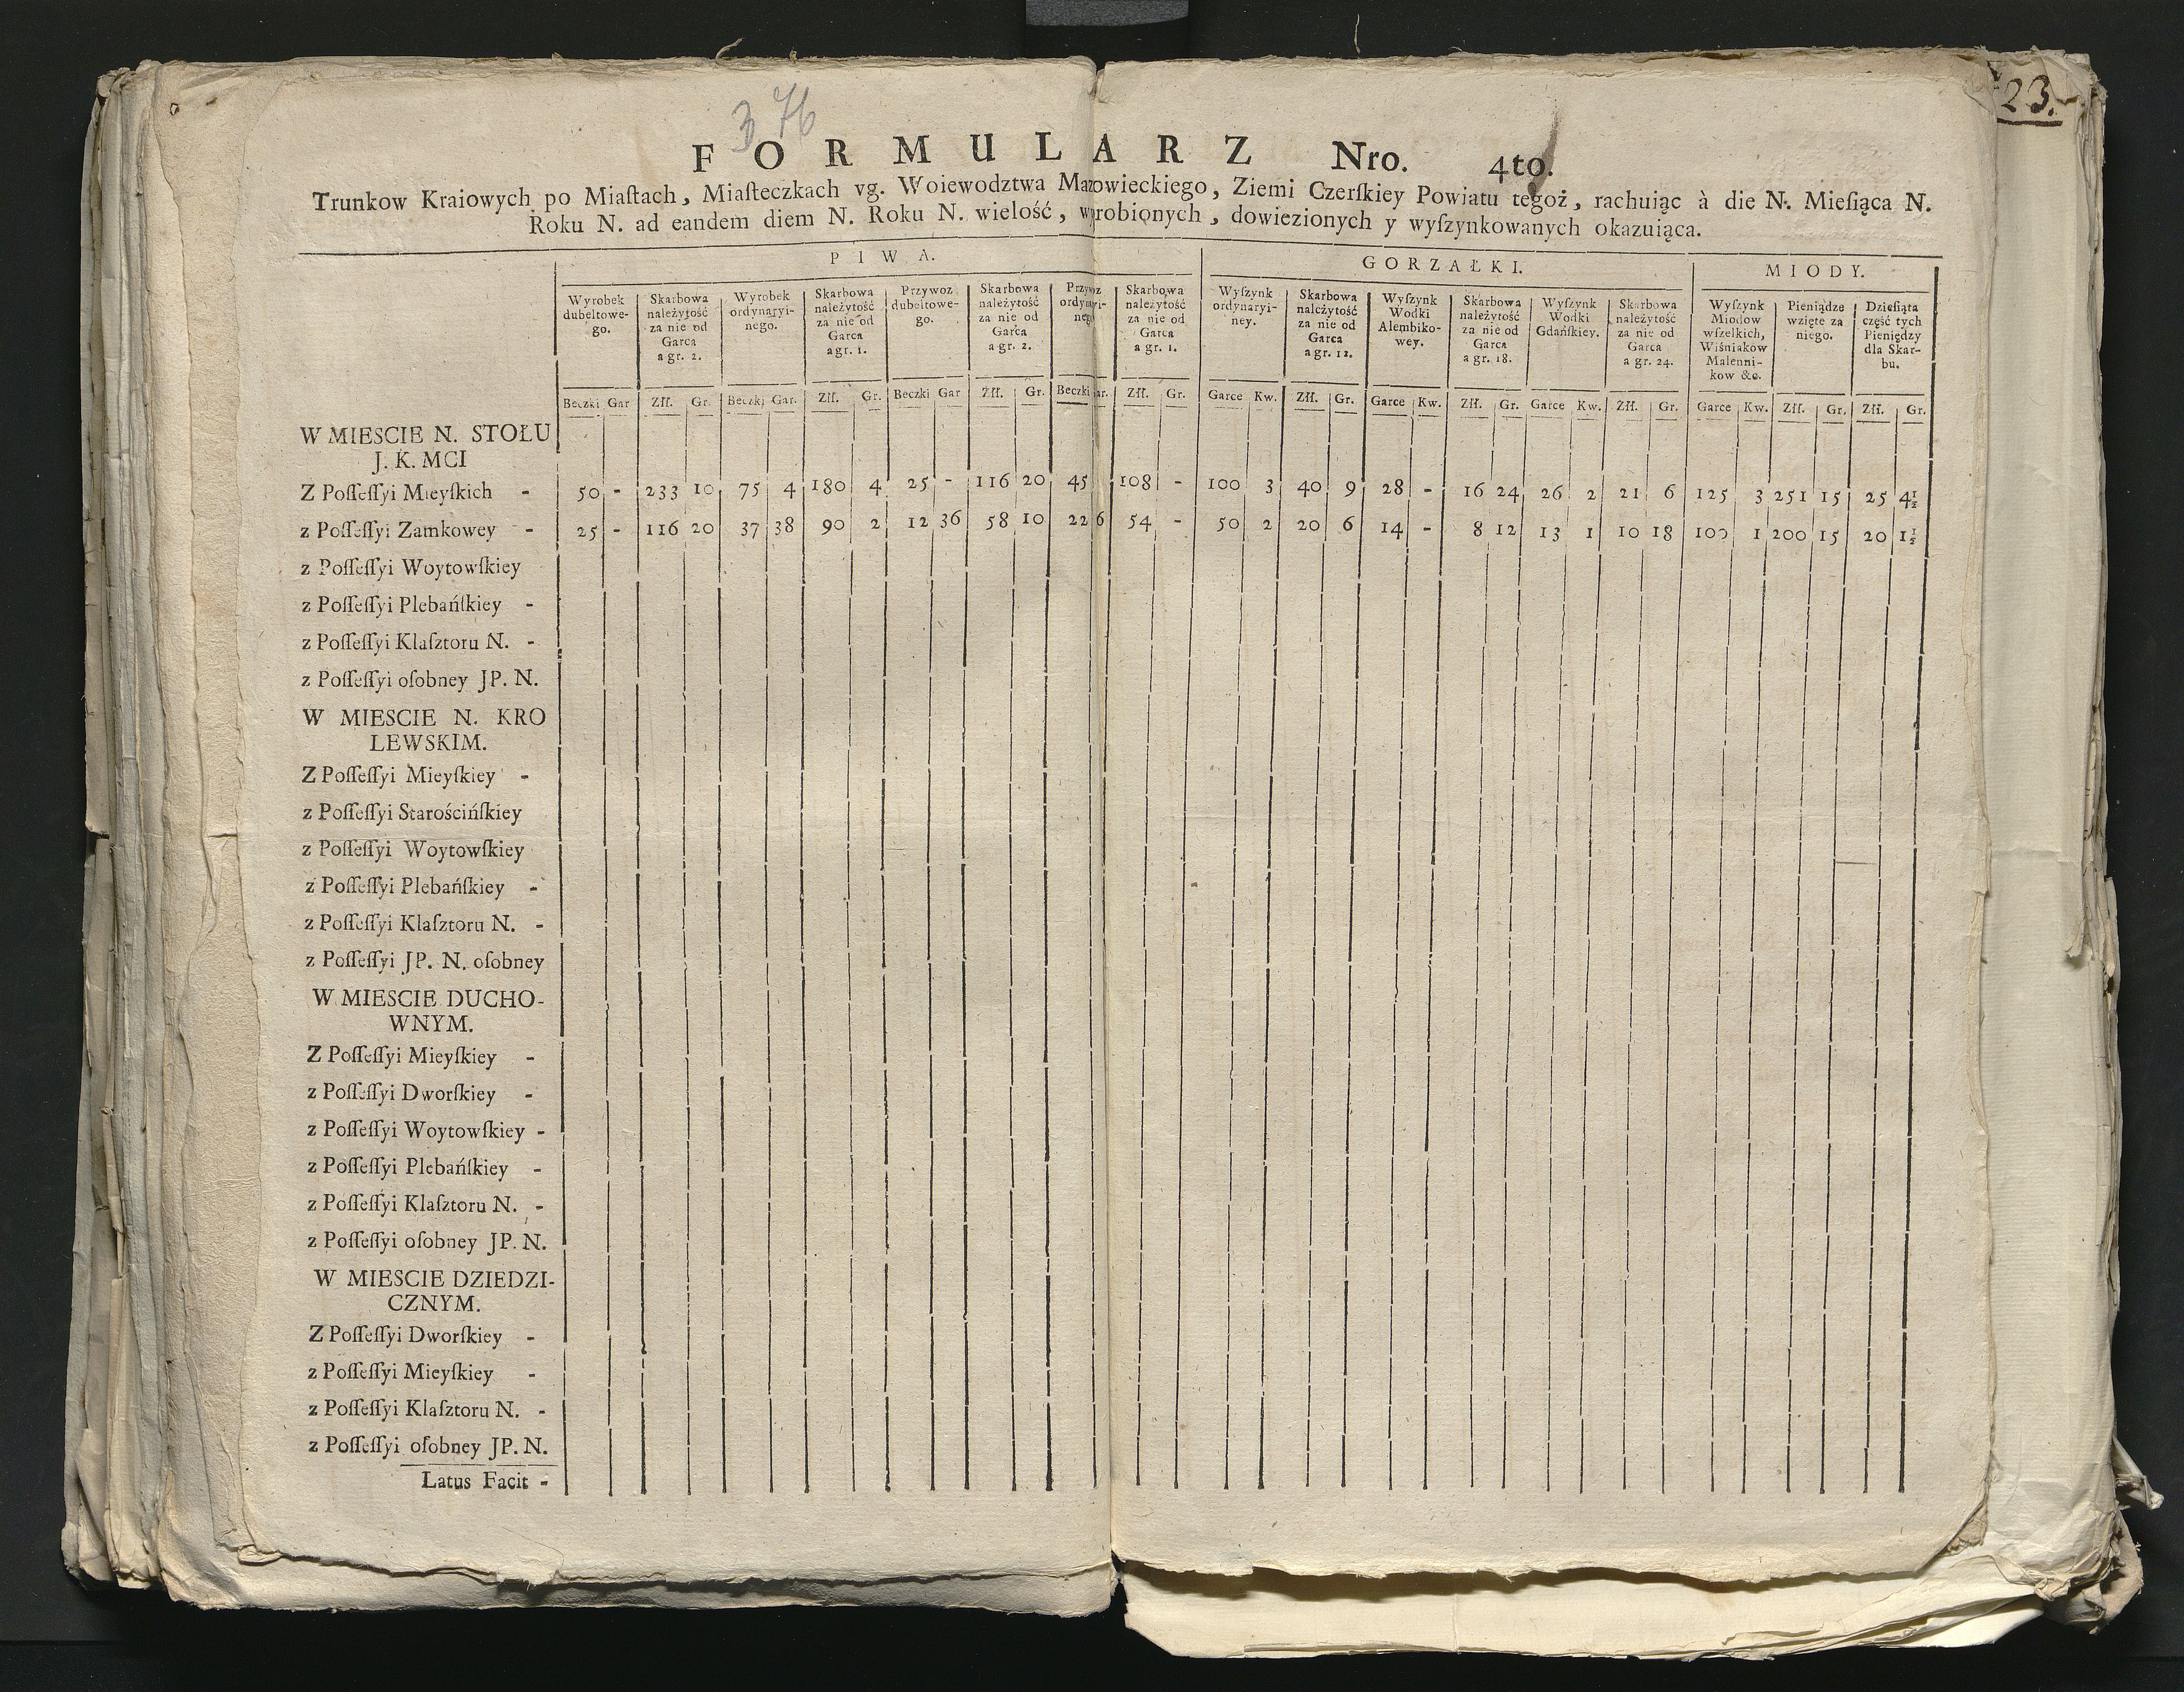 3 76
23.
FORMULARZ Nro. 4to.
Trunkow Kraiowych po Miaſtach, Miaſteczkach vg. Woiewodztwa Mazowieckiego, Ziemi Czerſkiey Powiatu tegoż, rachuiąc à die N. Mieſiąca N.
Roku N. ad eandem diem N. Roku N. wielość, wyrobionych, dowiezionych y wyſzynkowanych okazuiąca.
PIWA. GORZAŁKI. MIODY.
Wyrobek dubeltowe-go. Skarbowa należytość za nie od Garca a gr. 2. Wyrobek ordynaryi-nego. Skarbowa należytość za nie od Garca a gr. 1. Przywoz dubeltowe-go. Skarbowa należytość za nie od Garca a gr. 2. Przywoz ordynaryi-nego Skarbowa należytość za nie od Garca a gr. 1. Wyſzynk ordynaryi-ney. Skarbowa należytość za nie od Garca a gr. 12. Wyſzynk Wodki Alembiko-wey. Skarbowa należytość za nie od Garca a gr. 18. Wyſzynk Wodki Gdańſkiey. Skarbowa należytość za nie od Garca a gr. 24. Wyſzynk Miodow wſzelkich, Wiśniakow Malenni-kow &c. Pieniądze wzięte za niego. Dzieſiąta część tych Pieniędzy dla Skar-bu.
Beczki Gar Złł. Gr. Beczki Gar. Złł. Gr. Beczki Gar Złł. Gr. Beczki Gar. Złł. Gr. Garce Kw. Złł. Gr. Garce Kw. Złł. Gr. Garce Kw. Złł. Gr. Garce Kw. Złł. Gr. Złł. Gr.
W MIESCIE N. STOŁU
J. K. MCI
Z Poſſeſſyi Mieyſkich - 50 - 233 10 75 4 180 4 25 - 116 20 45 108 - 100 3 40 9 28 - 16 24 26 2 21 6 125 3 251 15 25 4½
z Poſſeſſyi Zamkowey - 25 - 116 20 37 38 90 2 12 36 58 10 22 6 54 - 50 2 20 6 14 - 8 12 13 1 10 18 100 1 200 15 20 1½
z Poſſeſſyi Woytowſkiey
z Poſſeſſyi Plebańſkiey -
z Poſſeſſyi Klaſztoru N. -
z Poſſeſſyi oſobney JP. N.
W MIESCIE N. KRO
LEWSKIM.
Z Poſſeſſyi Mieyſkiey -
z Poſſeſſyi Starościńſkiey
z Poſſeſſyi Woytowſkiey
z Poſſeſſyi Plebańſkiey -
z Poſſeſſyi Klaſztoru N. -
z Poſſeſſyi JP. N. oſobney
W MIESCIE DUCHO-
WNYM.
Z Poſſeſſyi Mieyſkiey -
z Poſſeſſyi Dworſkiey -
z Poſſeſſyi Woytowſkiey -
z Poſſeſſyi Plebańſkiey -
z Poſſeſſyi Klaſztoru N. -
z Poſſeſſyi oſobney JP. N.
W MIESCIE DZIEDZI-
CZNYM.
Z Poſſeſſyi Dworſkiey -
z Poſſeſſyi Mieyſkiey -
z Poſſeſſyi Klaſztoru N. -
z Poſſeſſyi oſobney JP. N.
Latus Facit -